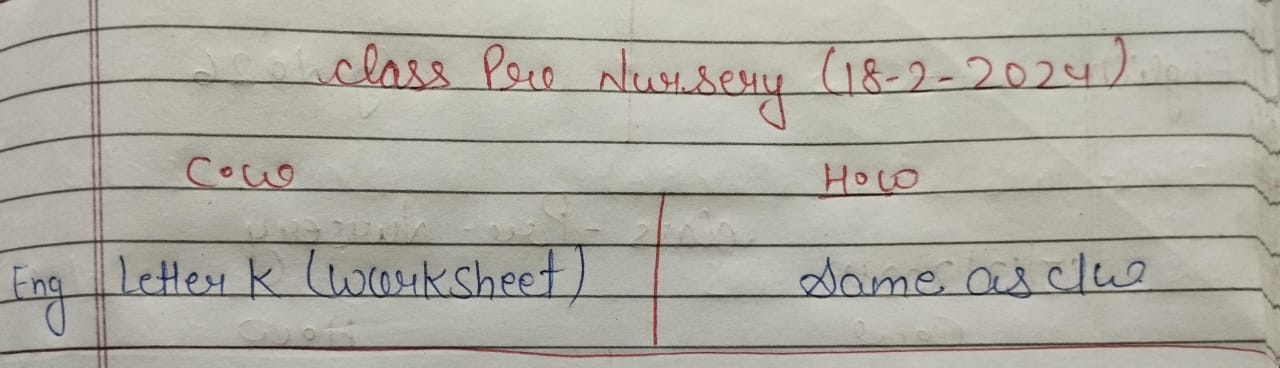 Class Pre Nursery (18-2-2024)
C.W H.W
Eng Letter K (Worksheet) Same as c/w